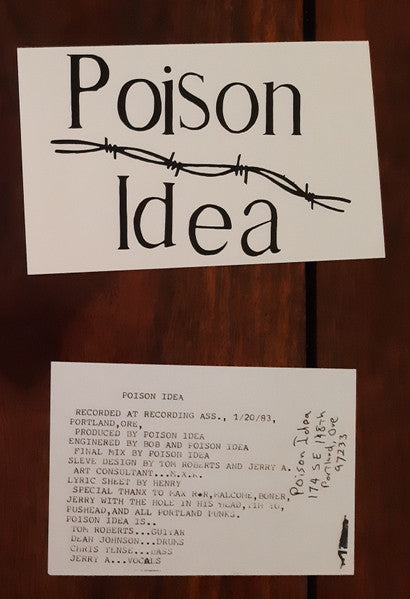 Poison
Idea
POISON IDEA
RECORDED AT RECORDING ASS., 1/20/83,
PORTLAND,ORE,
PRODUCED BY POISON IDEA
ENGINERED BY BOB AND POISON IDEA
FINAL MIX BY POISON IDEA
SLEVE DESIGN BY TOM ROBERTS AND JERRY A.
ART CONSULTANT...M.X.R.
LYRIC SHEET BY HENRY
SPECIAL THANX TO MAX R*R,MALCOME,BONER,
JERRY WITH THE HOLE IN HIS HEAD,TIM YO,
PUSHEAD,AND ALL PORTLAND PUNKS.
POISON IDEA IS..
TOM ROBERTS...GUITAR
DEAN JOHNSON...DRUMS
CHRIS TENSE...BASS
JERRY A...VOCALS
Poison Idea
174 SE 148th
Portland, Ore
97233